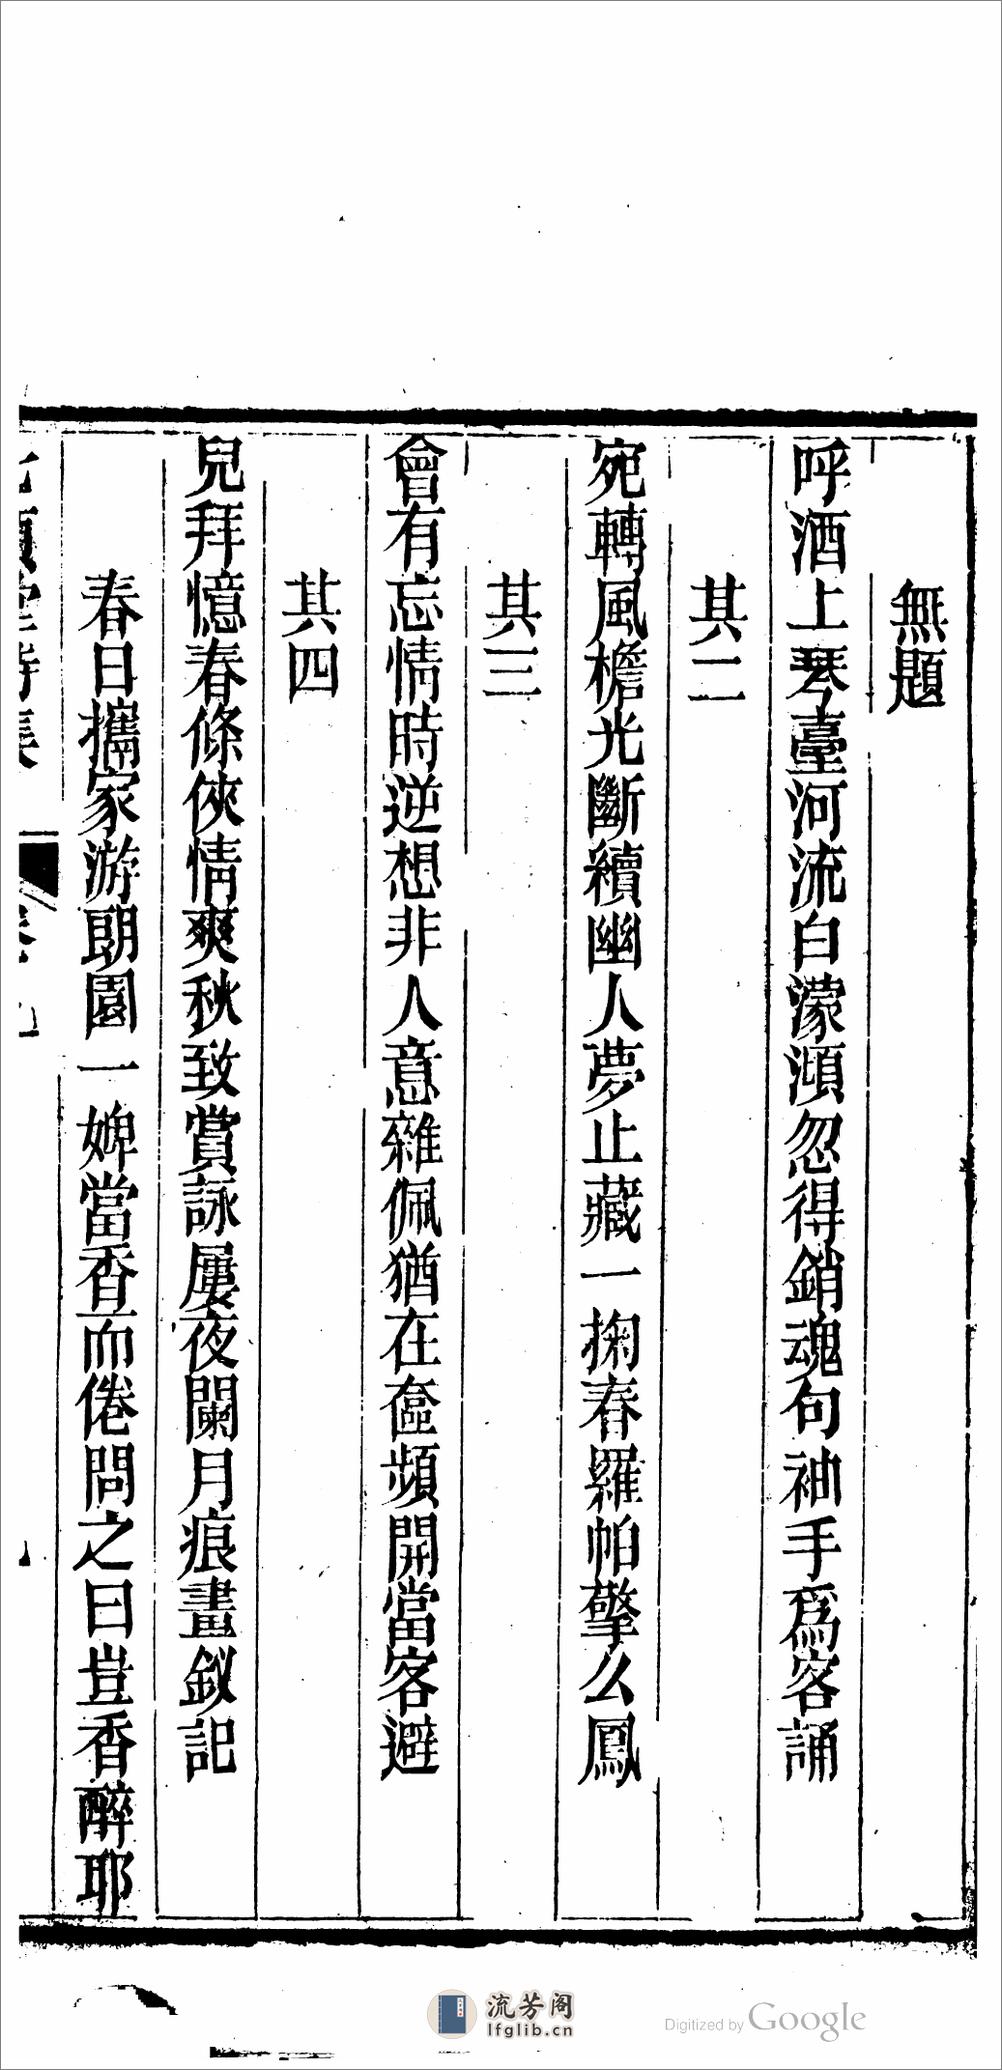 無題
呼酒上琴臺河流白濛澒忽得銷魂句袖手爲客誦
其二
宛轉風檐光斷續幽人夢止藏一掬春羅帕擎么鳳
其三
會有忘情時逆想非人意雜佩猶在奩頻開當客避
其四
兒拜憶春條俠情爽秋致賞詠屢夜闌月痕畫釵記
春日攜家游朗園一婢當香而倦問之曰豈香醉耶
七頌堂詩集 卷九
流芳阁
lfglib.cn
Digitized by Google